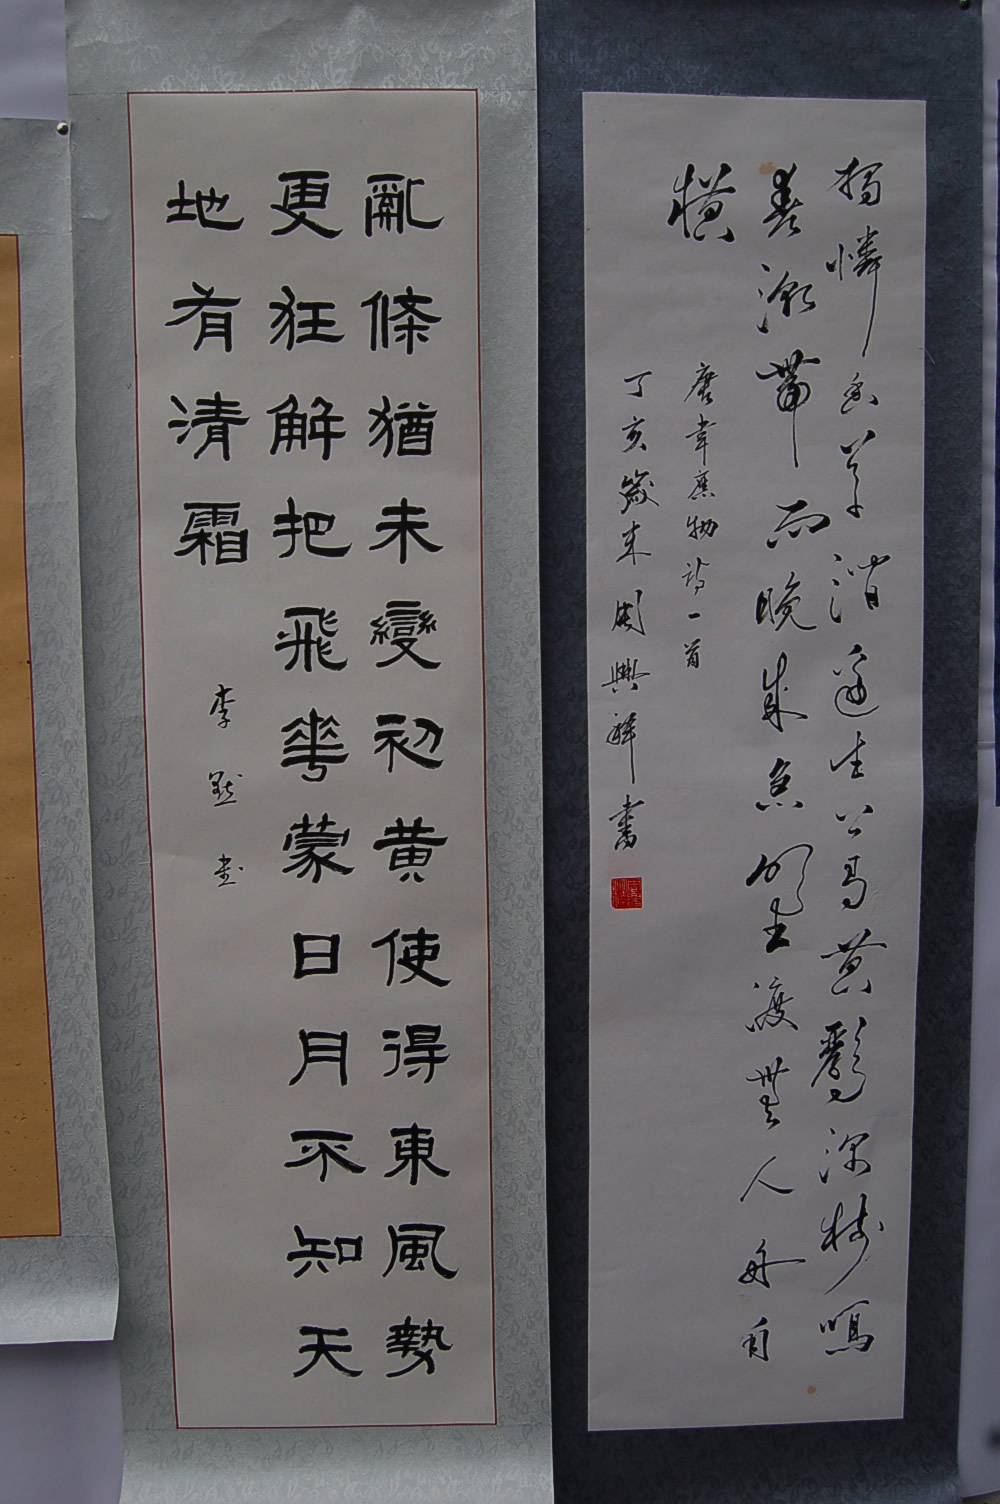 獨憐幽草澗邊生上有黃鸝深樹鳴
春潮帶雨晚來急野渡無人舟自
橫
唐韋應物詩一首
丁亥歲末周興祥書
亂條猶未變初黃使得東風勢
更狂解把飛華蒙日月不知天
地有清霜
李默書